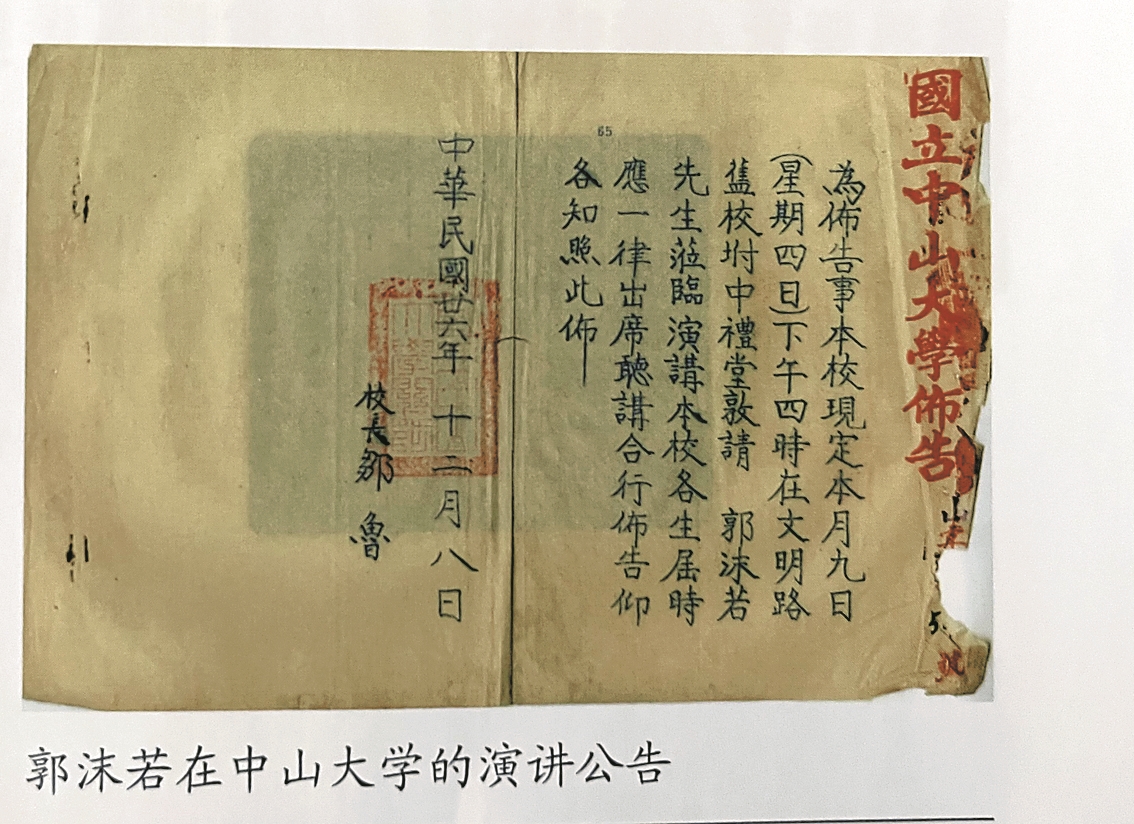 國立中山大學佈告
為佈告事本校現定本月九日
(星期四日)下午四時在文明路
舊校坿中禮堂敦請 郭沫若
先生蒞臨演講本校各生屆時
應一律出席聽講合行佈告仰
各知照此佈
65
中華民國廿六年 十二月八日
校長鄒 魯
號
郭沫若在中山大学的演讲公告